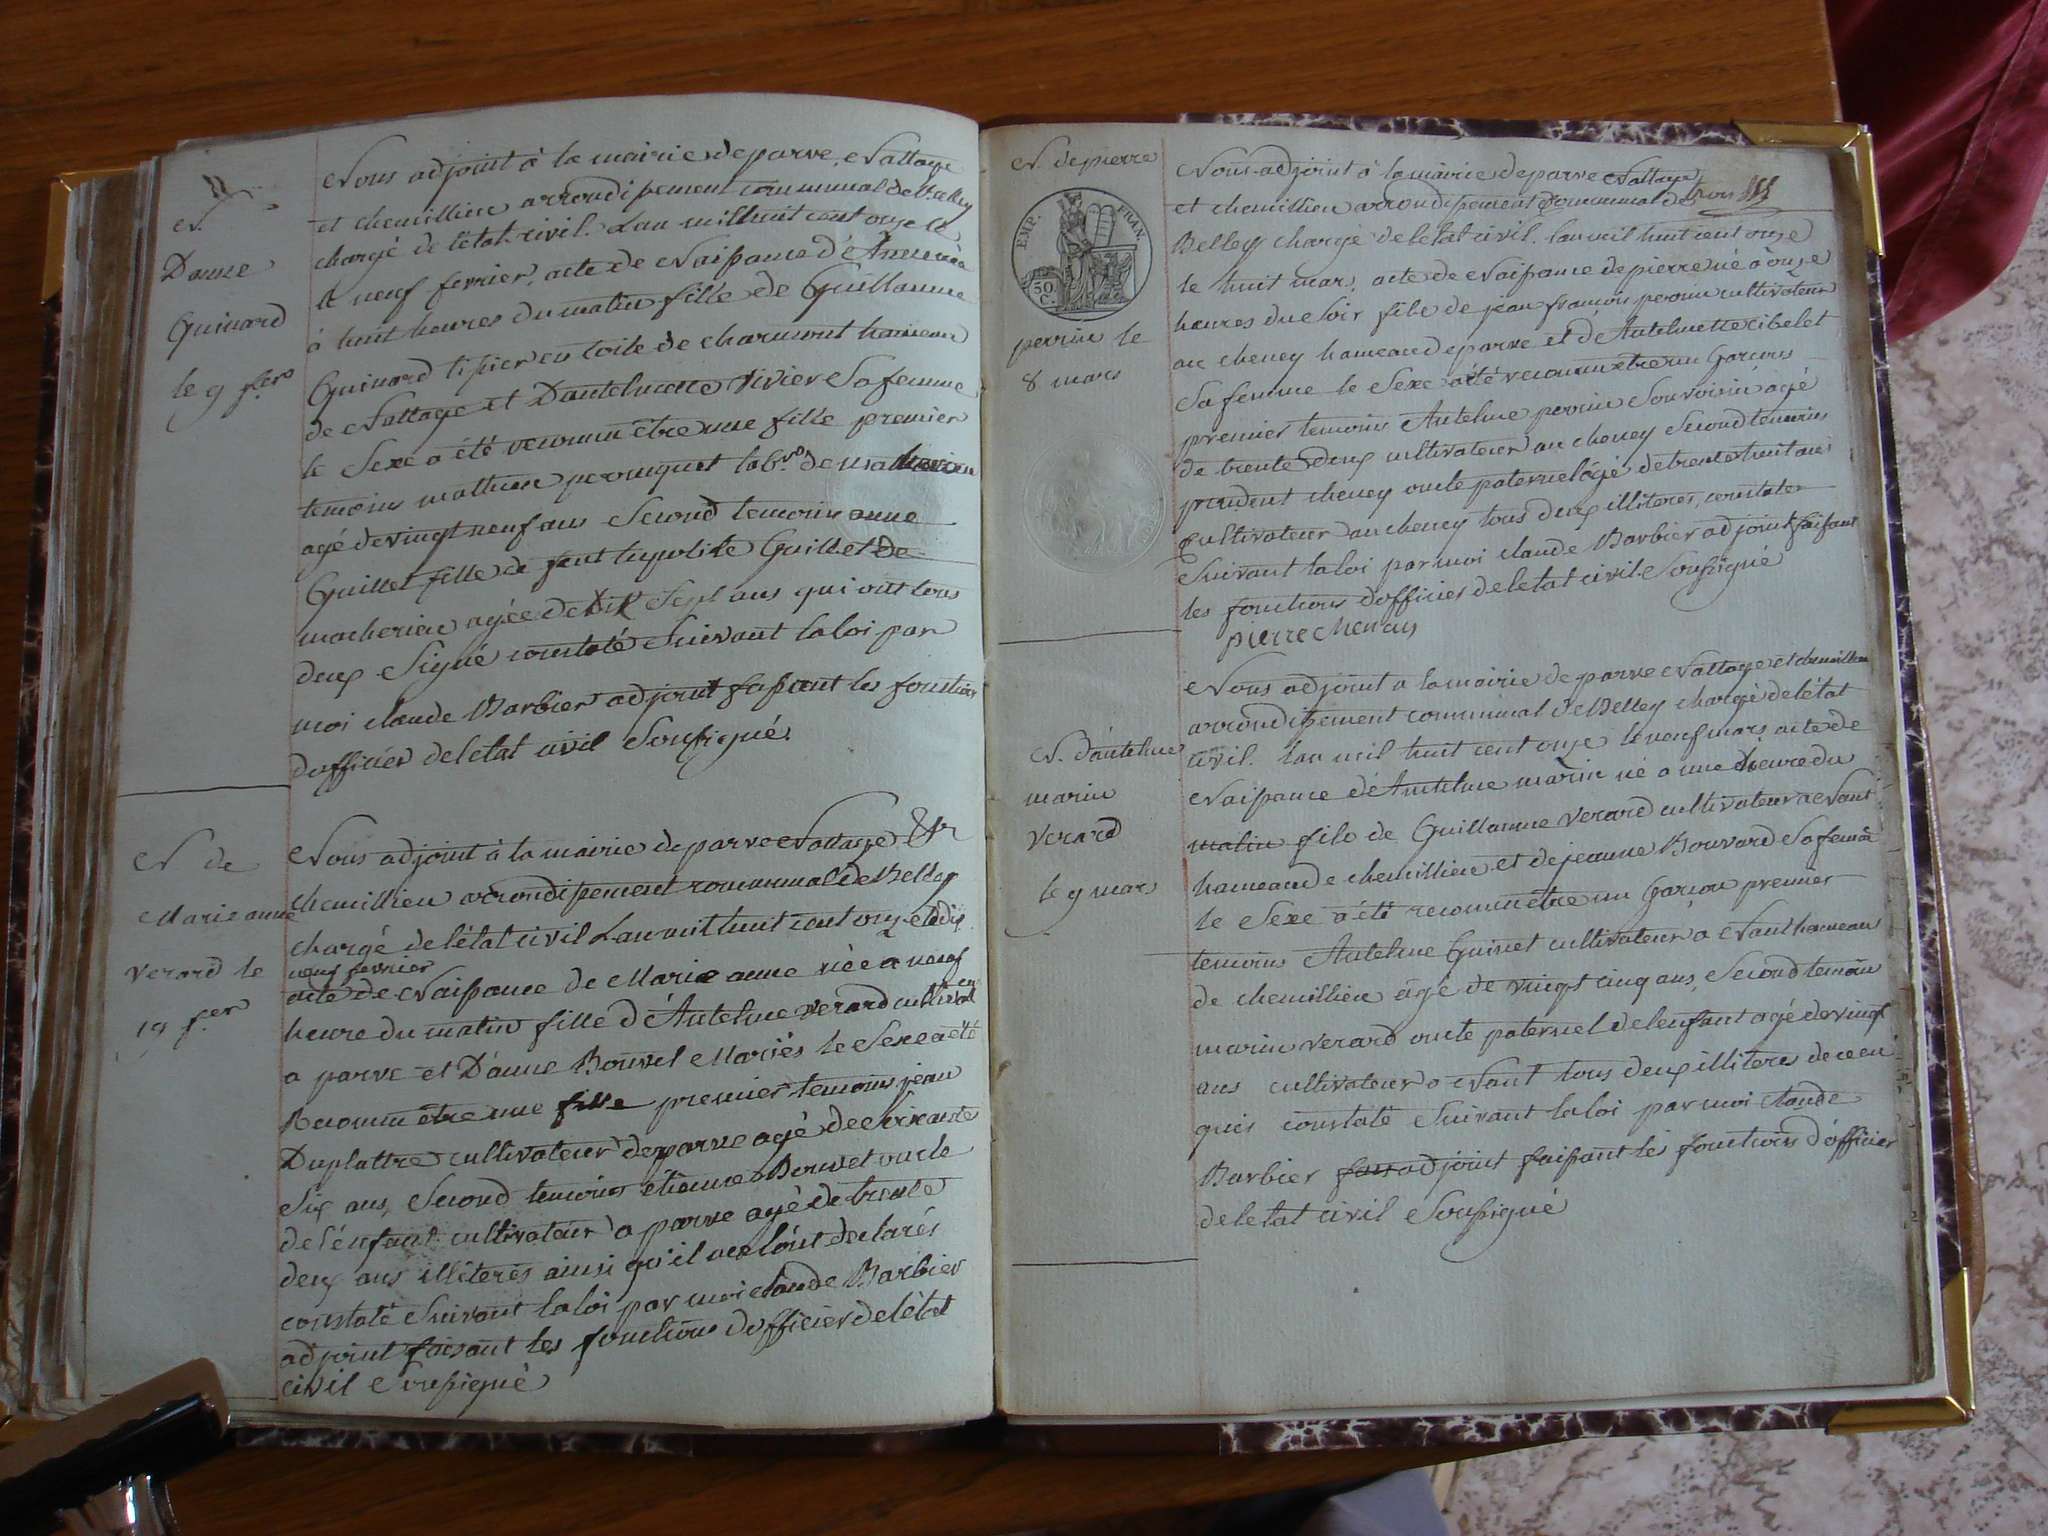 N.
Danne
Guinard
le 9 f.er
Nous adjoint à la mairie de parve, Nattage
et chemillieu arrondissement communal de Belley
chargé de létat civil. Lan mil huit cent onze le
neuf fevrier, acte de Naissance d'Anne née
à huit heures du matin fille de Guillaume
Guinard tissier en toile de charmont hameau
de Nattage et Dantelmette vivier Sa femme
le Sexe a été reconnu être une fille premier
temoins mathieu perouquet lab.r de
agé devingt neuf ans Second temoins anne
Guillet fille de feut hypolite Guillet de
macherieu agée de dix Sept ans qui ont tous
deux Signé constaté Suivant la loi par
moi claude Barbier adjoint faisant les fonction
dofficier deletat civil Soussigné.
N. de
Marie anne
verard le
19 f.er
Nous adjoint à la mairie de parve Nattage Et
chemillieu arrondissement communal de Belley
chargé de létat civil Lan mil huit cent onze le dix
neuf fevrier
acte de Naissance de Marie anne née a neuf
heure du matin fille d'Antelme verard
a parve et D'anne Bouvet Mariés le Sexe a été
Reconnu être une fille premier temoins jean
Duplattre cultivateur de parve agé de Soixante
Six ans, Second temoins étienne Bouvet oncle
de lénfant cultivateur a parve agé de trente
deux ans illiterés ainsi qu'il me lónt declarés
constaté Suivant la loi par moi claude Barbier
adjoint faisant les fonctions dofficier de létat
civil Soussigné
N. de pierre
EMP. FRAN.
50
C.
perrin le
8 mars
Nous adjoint à la mairie de parve Nattage
et chemillieu arrondissement communal de
Belley chargé de letat civil. lan mil huit cent onze
le huit mar, acte de Naissance de pierre né à onze
heures du Soir fils de jean françois perrin cultivateur
au cheney hameau de parve et d'Antelmette cibelet
Sa femme le Sexe a été reconnu être un Garcons
premier temoins Antelme perrin Son voisin agé
de trente deux cultivateur au cheney Second temoins
prudent cheney oncle paternel âgé de trente huit ans
cultivateur au cheney tous deux illiteres, constater
Suivant la loi par moi claude Barbier adjoint faisant
les fonctions dofficier de letat civil. Soussigné
pierre
N. d'antelme
marin
verard
le 9 mars
Nous adjoint a la mairie de parve Nattage et chemillieu
arrondissement communal de Belley chargé de létat
civil. Lan mil huit cent onze le neuf mars acte de
Naissance d'Antelme marin né a une heure du
matin fils de Guillaume verard cultivateur a Nant
hameau de chemillieu et de jeanne Bouvard Sa femē
le Sexe a été reconnu être un Garcon premier
temoins Antelme Guinet cultivateur a Nant hameau
de chemillieu âgé de vingt cinq ans, Second temoin
marin verard oncle paternel de lenfant agé de vingt
ans cultivateur a Nant tous deux illiteres de ce en
quis constaté Suivant la loi par moi claude
Barbier adjoint faisant les fonctions d'officier
de letat civil Soussigné